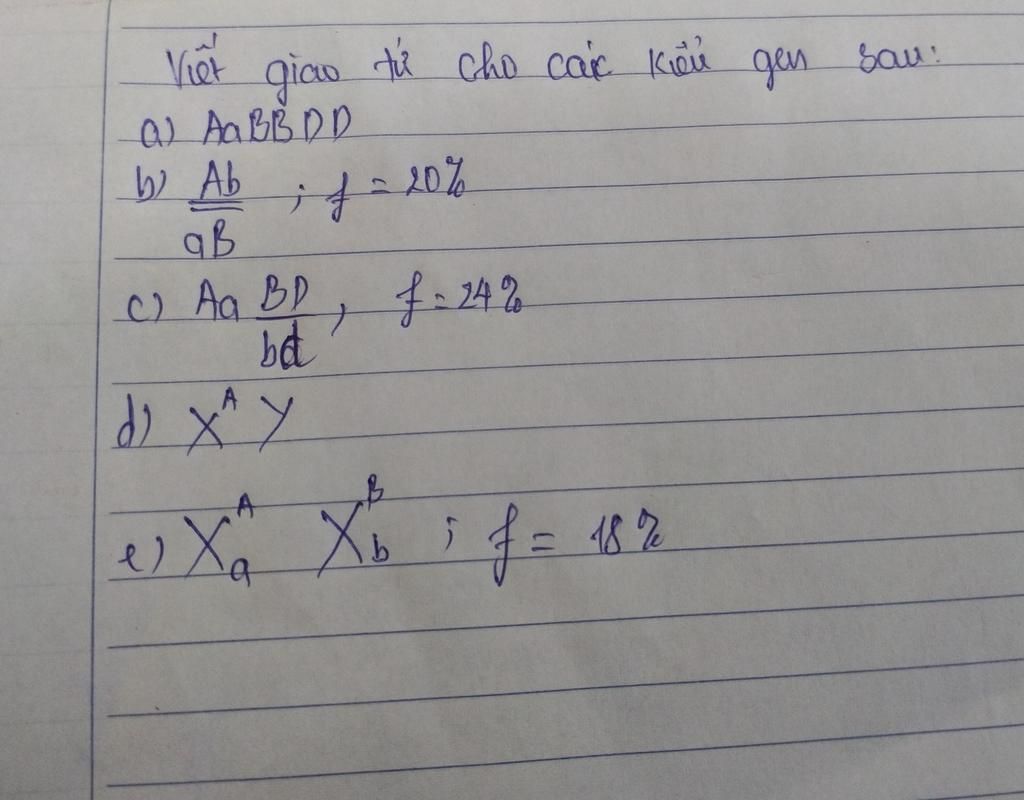 Viết giao tử cho các kiểu gen sau:
a) AaBBDD
b) Ab ; f = 20%
aB
c) Aa BD , f = 24%
bd
d) X^A Y
e) X^A_a X^B_b ; f = 18%